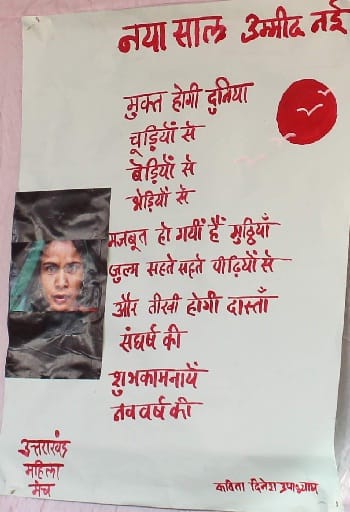 नया साल उम्मीद नई
मुक्त होगी दुनिया
चूड़ियों से
बेड़ियों से
भेड़ियों से
मजबूत हो गयीं हैं मुठ्ठियाँ
जुल्म सहते सहते पीढ़ियों से
और तीखी होगी दास्ताँ
संघर्ष की
शुभकामनायें
नव वर्ष की
उत्तराखंड
महिला
मंच
कविता दिनेश उपाध्याय